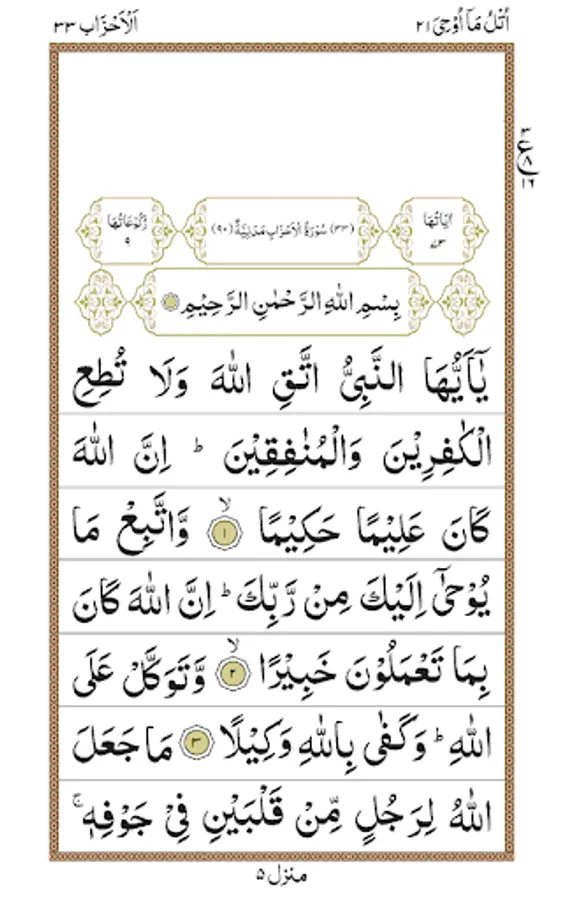 اُتْلُ مَاۤ اُوْحِیَ ۲۱
اَلْاَحْزَاب ۳۳
۳
ع
۸
۱۶
اٰیَاتُهَا ۷۳
(۳۳) سُوْرَةُ الْاَحْزَابِ مَدَنِیَّةٌ (۹۰)
رُكُوْعَاتُهَا ۹
بِسْمِ اللّٰهِ الرَّحْمٰنِ الرَّحِیْمِ
یٰۤاَیُّهَا النَّبِیُّ اتَّقِ اللّٰهَ وَلَا تُطِعِ
الْكٰفِرِیْنَ وَالْمُنٰفِقِیْنَ ؕ اِنَّ اللّٰهَ
كَانَ عَلِیْمًا حَكِیْمًا ۙ﴿۱﴾ وَّاتَّبِعْ مَا
یُوْحٰۤی اِلَیْكَ مِنْ رَّبِّكَ ؕ اِنَّ اللّٰهَ كَانَ
بِمَا تَعْمَلُوْنَ خَبِیْرًا ۙ﴿۲﴾ وَّتَوَكَّلْ عَلَی
اللّٰهِ ؕ وَكَفٰی بِاللّٰهِ وَكِیْلًا ﴿۳﴾ مَا جَعَلَ
اللّٰهُ لِرَجُلٍ مِّنْ قَلْبَیْنِ فِیْ جَوْفِهٖ ۚ
منزل ۵